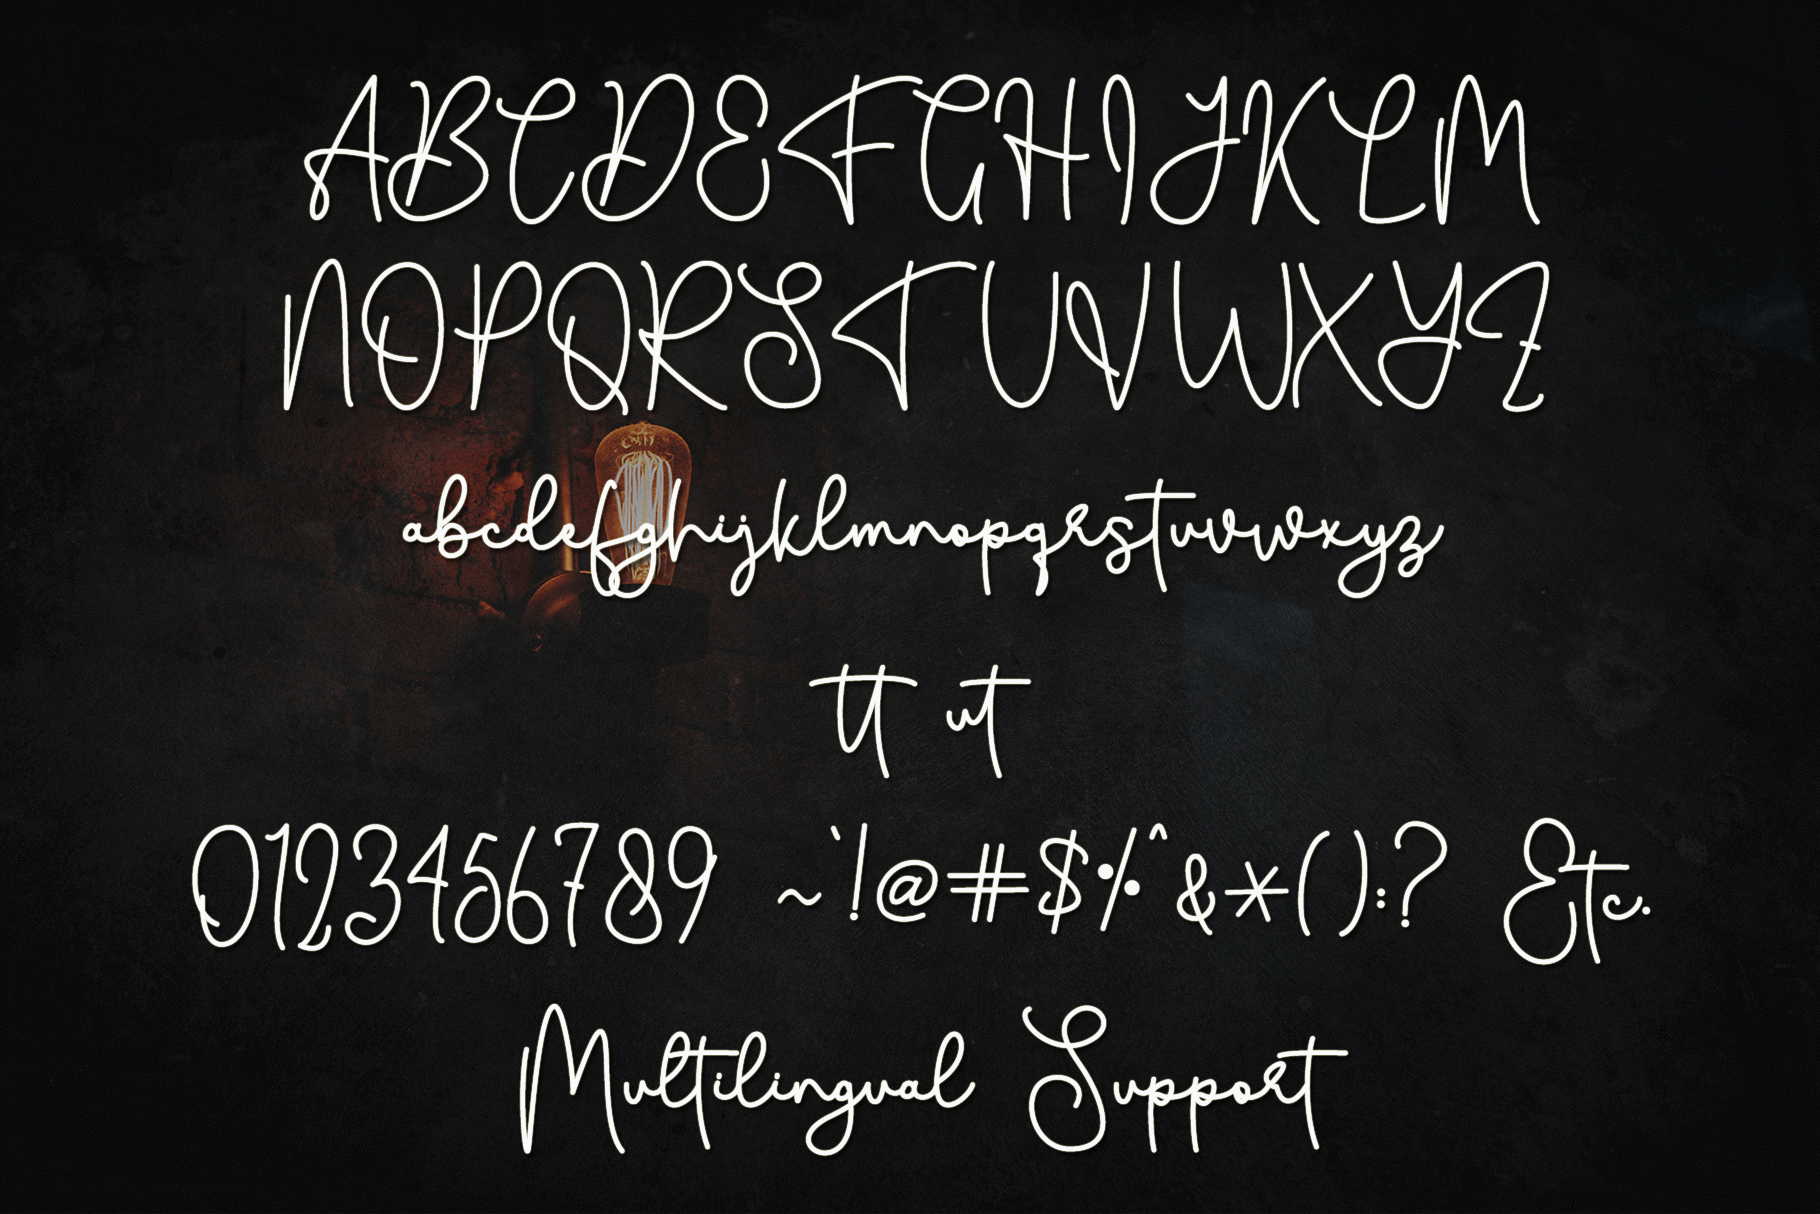 ABCDEFGHIJKLM
NOPQRSTUVWXYZ
abcdefghijklmnopqrstuvwxyz
tt ut
0123456789 ~`!@#$%^&*():? Etc.
Multilingual Support